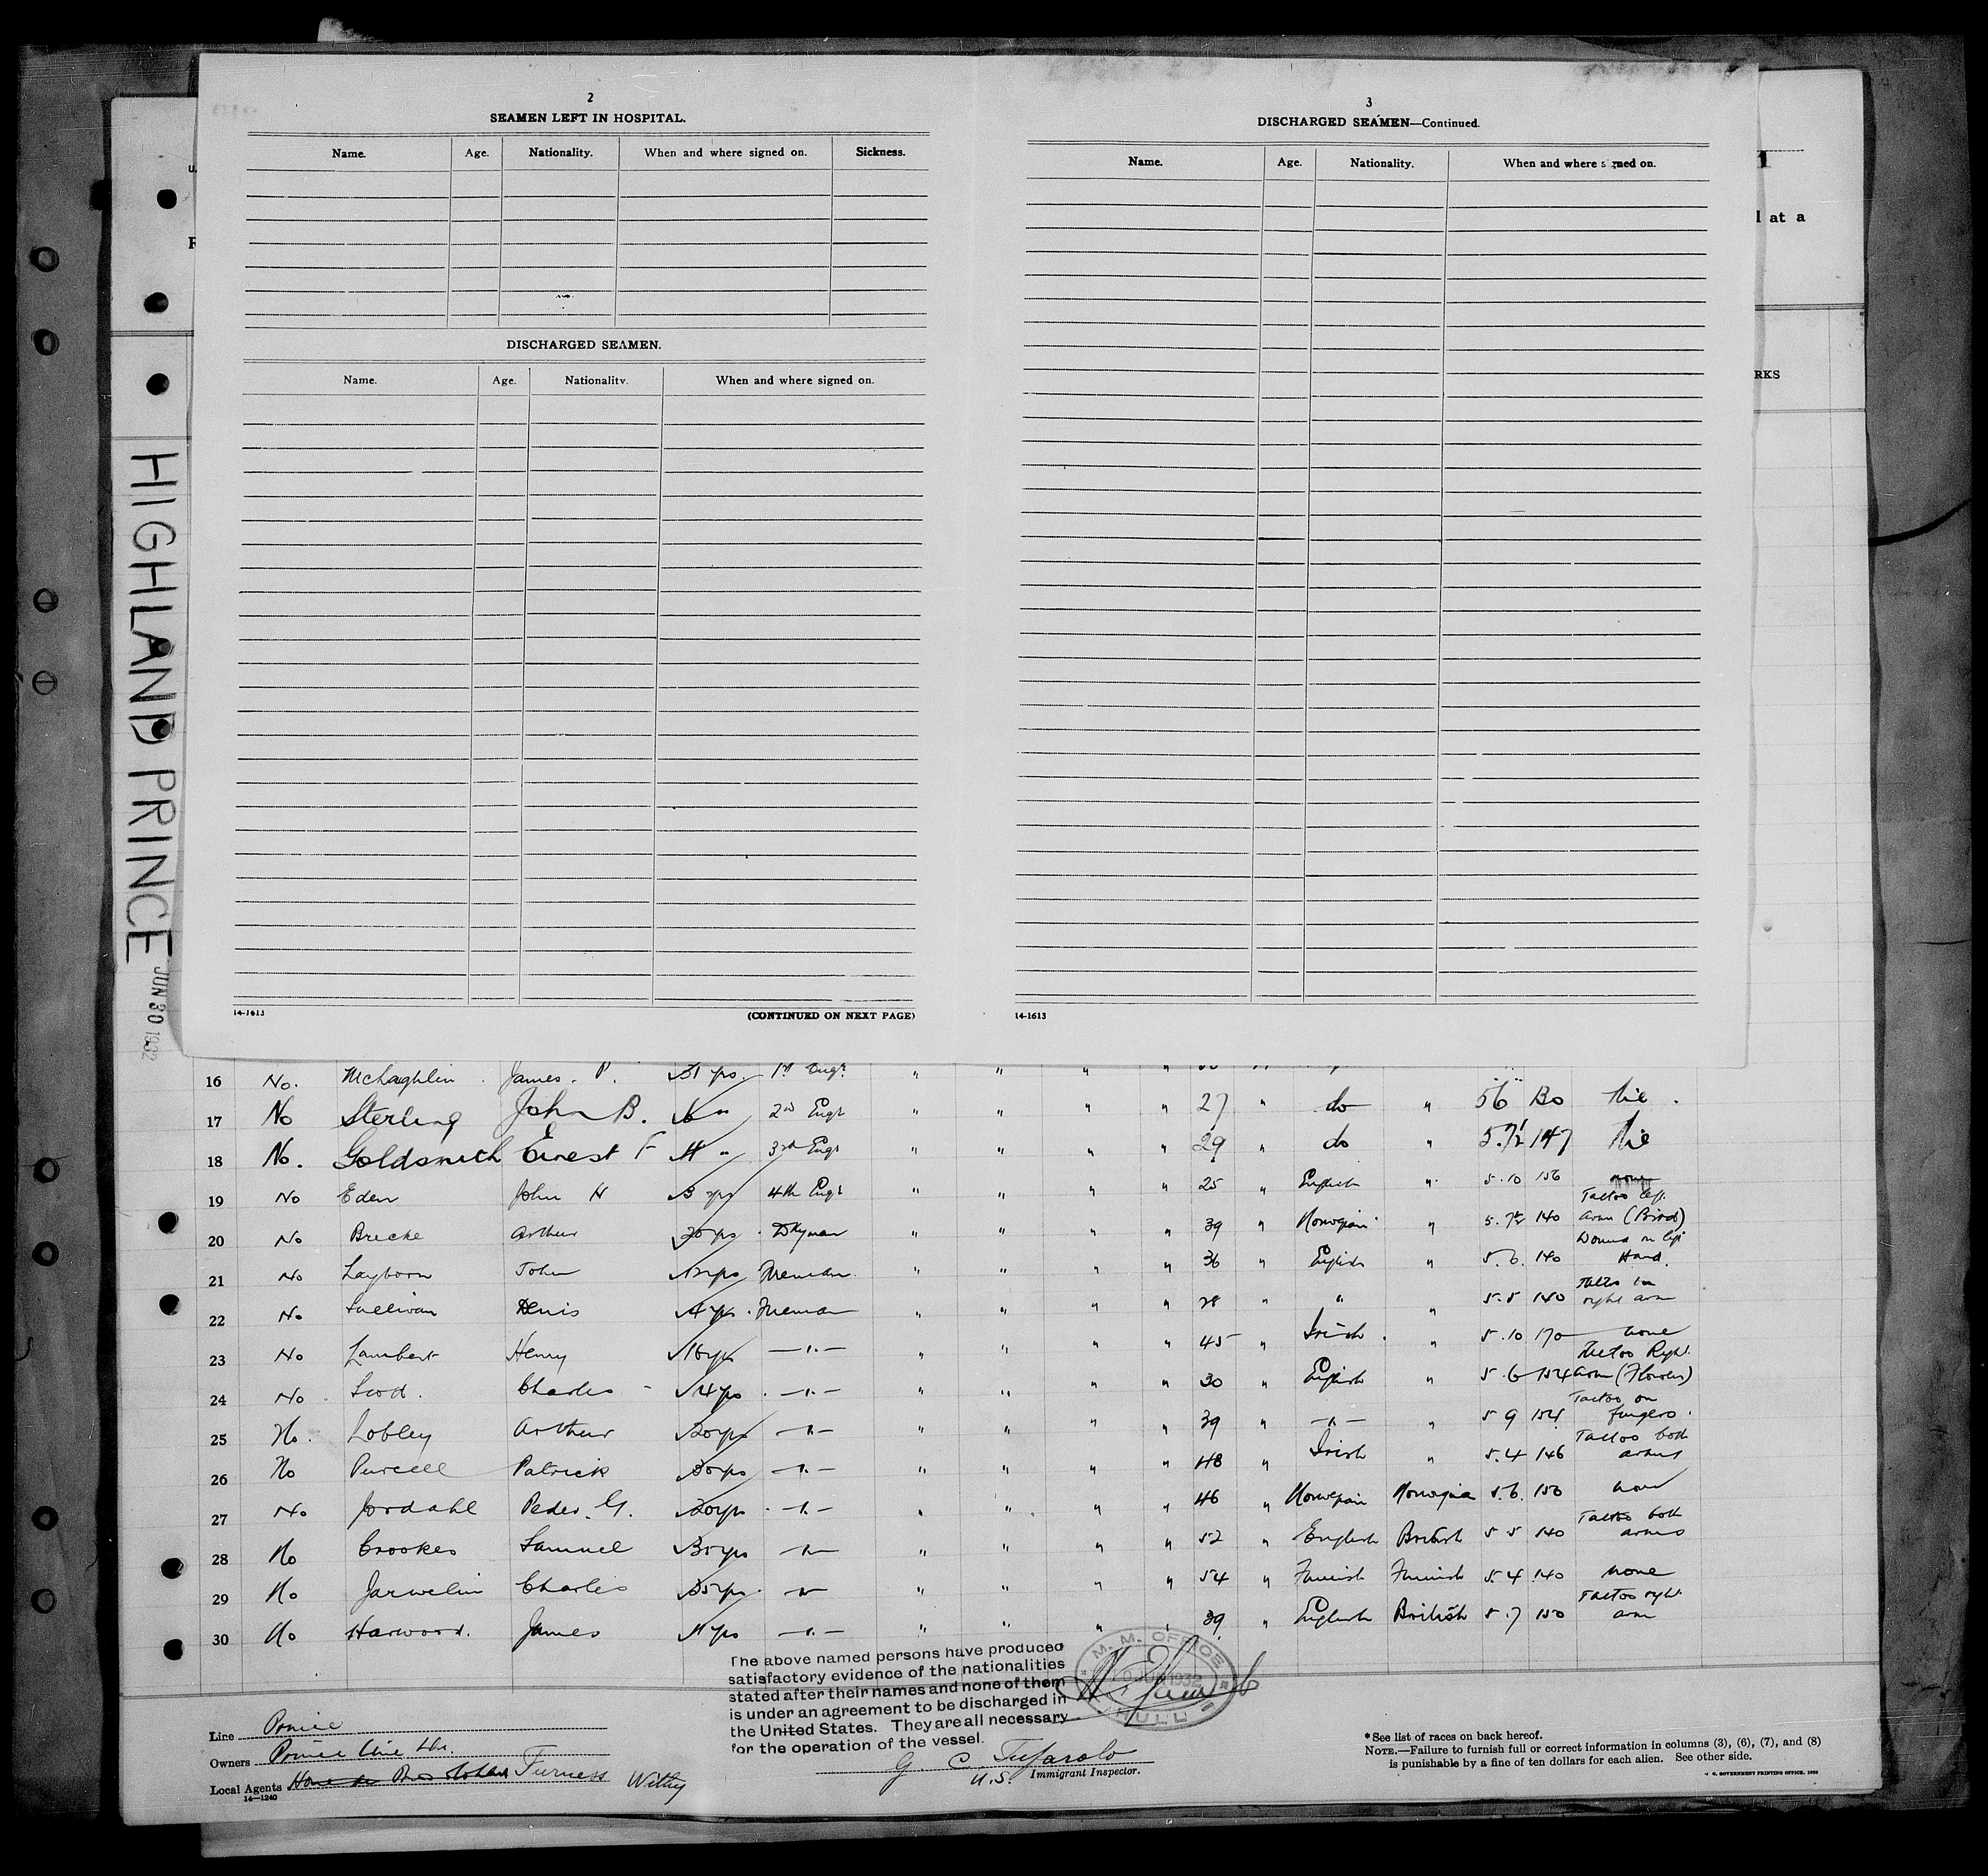 2
SEAMEN LEFT IN HOSPITAL.
Name. Age. Nationality. When and where signed on. Sickness.
DISCHARGED SEAMEN.
Name. Age. Nationality. When and where signed on.
14-1613 (CONTINUED ON NEXT PAGE)
3
DISCHARGED SEAMEN—Continued.
Name. Age. Nationality. When and where signed on.
14-1613
l at a
RKS
HIGHLAND PRINCE
JUN 30 1932
16 No. McLaghlin James. P. 1st Engr " " " "
17 No Sterling John B. 6 " 2nd Engr " " " " 27 " do " 5'6" 130 Nil.
18 No. Goldsmith Ernest F 3rd Engr " " " " 29 " do " 5.7½ 147 Nil
19 No Eden John H 3 yrs 4th Engr " " " " 25 " English " 5.10 156 none
20 No Brecke Arthur 20 yrs Dkyman " " " " 39 " Norwegian " 5.7½ 140 Tattoo left arm (Bird)
21 No Layborn John Fireman " " " " 36 " English " 5.6. 140 Wound on left Hand.
22 No Sullivan Denis 4 yrs. Fireman " " " " 28 " " " 5.5 140 Tattoo on right arm
23 No Lambert Henry 16 yrs —"— " " " " 45 " Irish. " 5.10 170 none
24 No Scott. Charles 14 yrs. —"— " " " " 30 " English " 5.6 154 Tattoo Right arm (Flowers)
25 No. Lobley Arthur 20 yrs —"— " " " " 39 " —"— " 5 9 154 Tattoo on fingers.
26 No Purcell Patrick 30 yrs —"— " " " " 48 " Irish " 5.4 146 Tattoo both arms
27 No Jordahl Peder. G. 20 yrs. —"— " " " " 46 " Norwegian Norwegian 5.6. 150 none
28 No Crookes Samuel 35 yrs —"— " " " " 52 " English British 5 5 140 Tattoo both arms
29 No Jarvelin Charles 35 yrs. —"— " " " " 54 " Finnish Finnish 5.4 140 none
30 No Harwood. James —"— " " " " 39 " English British 5.7 150 Tattoo right arm
The above named persons have produced
satisfactory evidence of the nationalities
stated after their names and none of them
is under an agreement to be discharged in
the United States. They are all necessary
for the operation of the vessel.
M. M. OFFICE
JUN 1932
HULL
G. C. Tufarolo
U.S. Immigrant Inspector.
Line Prince
Owners Prince Line Ltd.
Local Agents Furness Withy
14—1240
*See list of races on back hereof.
NOTE.—Failure to furnish full or correct information in columns (3), (6), (7), and (8)
is punishable by a fine of ten dollars for each alien. See other side.
U. S. GOVERNMENT PRINTING OFFICE.